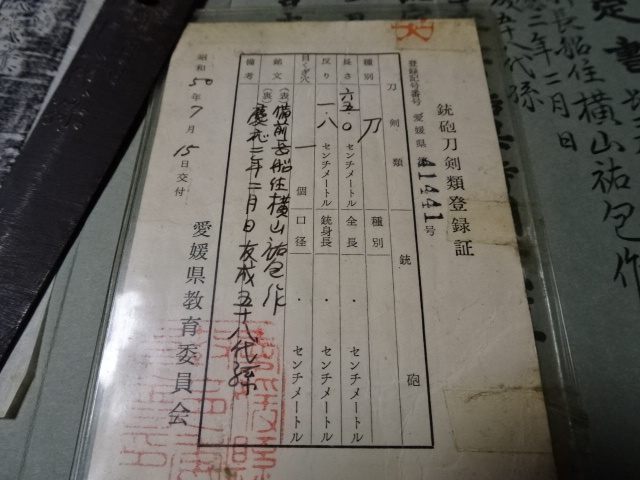 銃砲刀剣類登録証
登録記号番号 愛媛県 第41441号
刀剣類 銃砲
種別 刀 種別
長さ 六五・0 センチメートル 全長 ・ センチメートル
反り 一・八 センチメートル 銃身長 ・ センチメートル
目くぎ穴 一 個 口径 ・ センチメートル
銘文 (表) 備前長船住横山祐包作
(裏) 慶応二年二月日友成五十八代孫
備考
昭和50年7月15日交付
愛媛県教育委員会
長船住横山祐包作
二年二月日
成五十八代孫